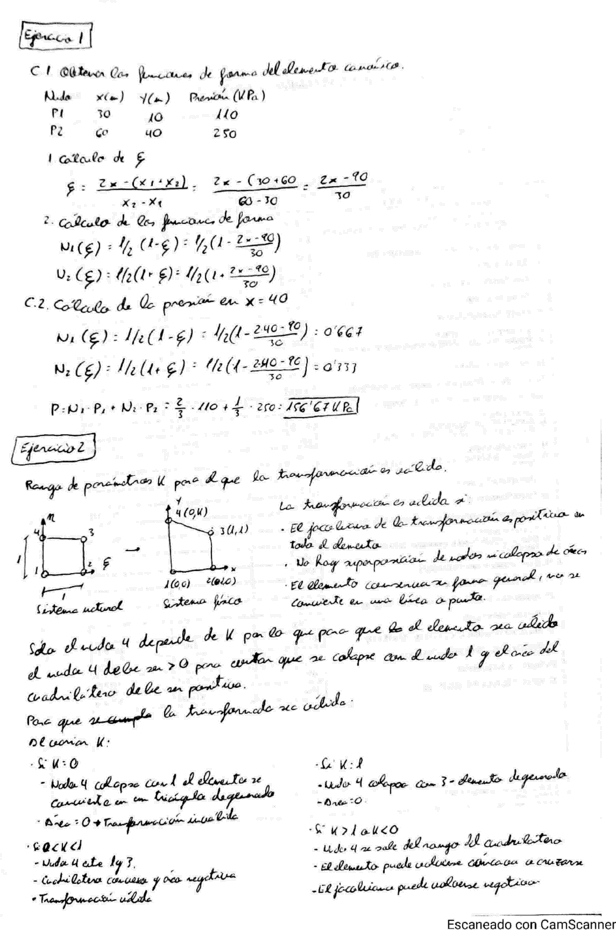 Ejercicio 1
C.1. Obtener las funciones de forma del elemento canónico.
Nudo x(m) y(m) Presión (KPa)
P1 30 10 110
P2 60 40 250
1 Calculo de ξ
ξ = 2x - (x1 + x2) / x2 - x1 = 2x - (30 + 60 / 60 - 30 = 2x - 90 / 30
2. Calculo de las funciones de forma
N1(ξ) = 1/2 (1 - ξ) = 1/2 (1 - 2x - 90 / 30)
N2(ξ) = 1/2 (1 + ξ) = 1/2 (1 + 2x - 90 / 30)
C.2. Calculo de la presión en x = 40
N1(ξ) = 1/2 (1 - ξ) = 1/2 (1 - 2·40 - 90 / 30) = 0'667
N2(ξ) = 1/2 (1 + ξ) = 1/2 (1 - 2·40 - 90 / 30) = 0'333
P = N1 · P1 + N2 · P2 = 2/3 · 110 + 1/3 · 250 = 156'67 KPa
Ejercicio 2
Rango de parámetros K para el que la transformación es válida.
η
4 3
1 2 ξ
1
1
Sistema natural
y
4 (0,K)
3 (1,1)
x
1(0,0)
Sistema físico
La transformación es válida si:
· El jacobiano de la transformación es positivo en
todo el elemento
· No hay superposición de nodos ni colapso de áreas
· El elemento conserva su forma general, no se
convierte en una línea o punto.
Sólo el nudo 4 depende de K por lo que para que el elemento sea válido
el nudo 4 debe ser > 0 para evitar que se colapse con el nudo 1 y el área del
cuadrilátero debe ser positiva.
Para que la transformada sea válida:
Al variar K:
· Si K = 0
- Nodo 4 colapsa con 1 el elemento se
convierte en un triángulo degenerado
- Área = 0 → Transformación inválida
· Si 0 < K < 1
- Nudo 4 ente 1 y 3.
- Cuadrilátero convexo y área negativa
· Transformación válida
· Si K = 1
- Nudo 4 colapsa con 3 - elemento degenerado
- Área = 0
· Si K > 1 o K < 0
- Nudo 4 se sale del rango del cuadrilátero
- El elemento puede volverse cóncavo o cruzarse
- El jacobiano puede volverse negativo
Escaneado con CamScanner